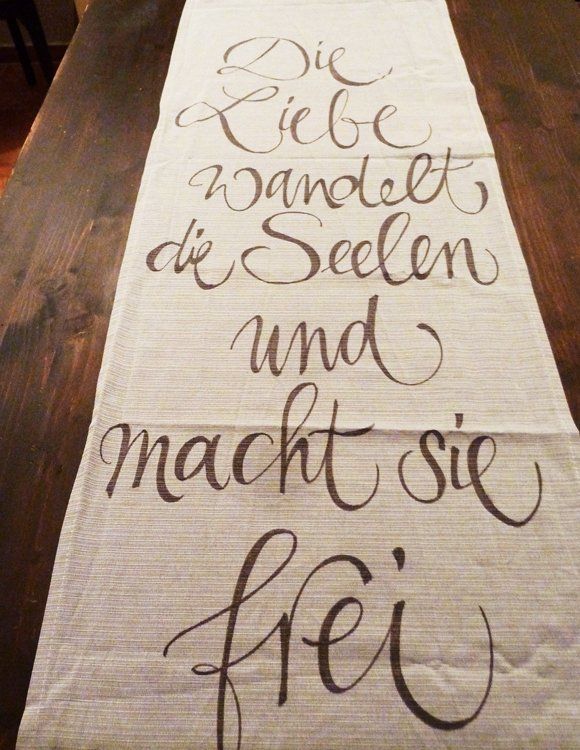 Die
Liebe
wandelt
die Seelen
und
macht sie
frei